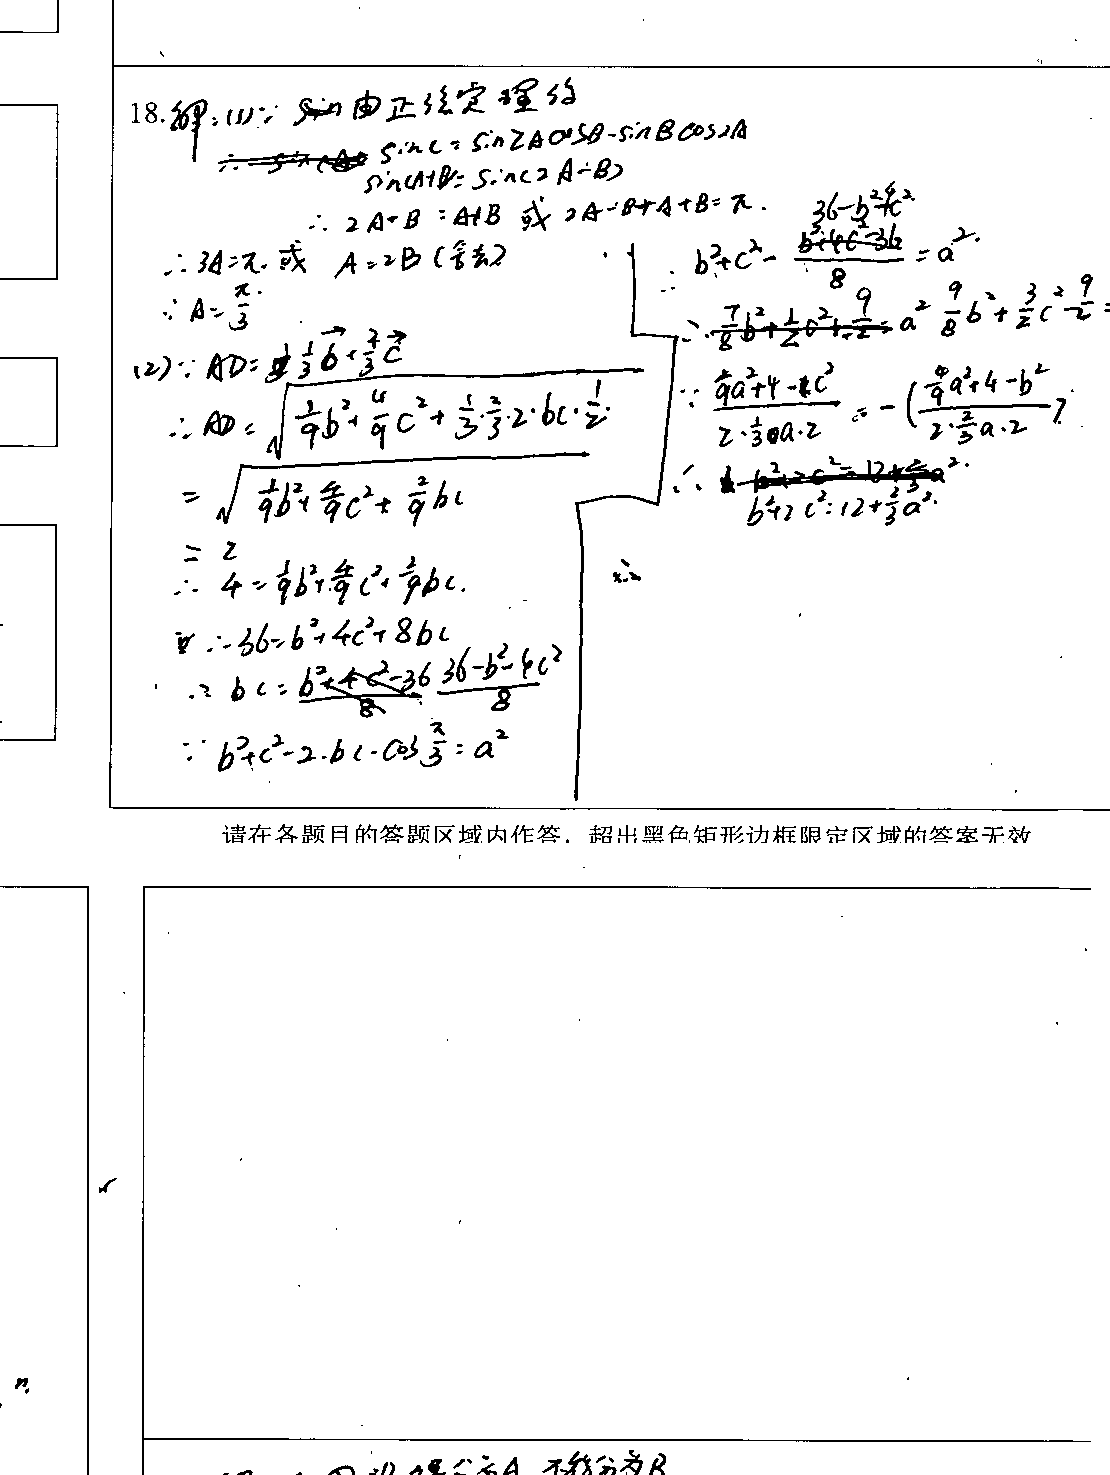 18. 解:(1)∵ 由正弦定理得
sinC=sin2AcosB-sinBcos2A
sin(A+B)=sin(2A-B)
∴ 2A-B=A+B 或 2A-B+A+B=π.
∴3A=π.或 A=2B(舍去)
∵A=π/3.
(2)∵AD=1/3 b+2/3 c
∴AD=√(1/9b²+4/9c²+1/3·2/3·2·bc·1/2)
=√(1/9b²+4/9c²+2/9bc)
=2
∴4=1/9b²+4/9c²+2/9bc.
∴36=b²+4c²+8bc
∴bc=(36-b²-4c²)/8
∵b²+c²-2·bc·cosπ/3=a²
∴b²+c²-(36-b²-4c²)/8=a².
∴ 9/8b²+3/2c²-9/2=
∵ (4/9a²+4-c²)/(2·1/3a·2)=-((4/9a²+4-b²)/(2·2/3a·2))
∴
b²+2c²=12+2/3a².
请在各题目的答题区域内作答,超出黑色矩形边框限定区域的答案无效
n.
A 不能分为B